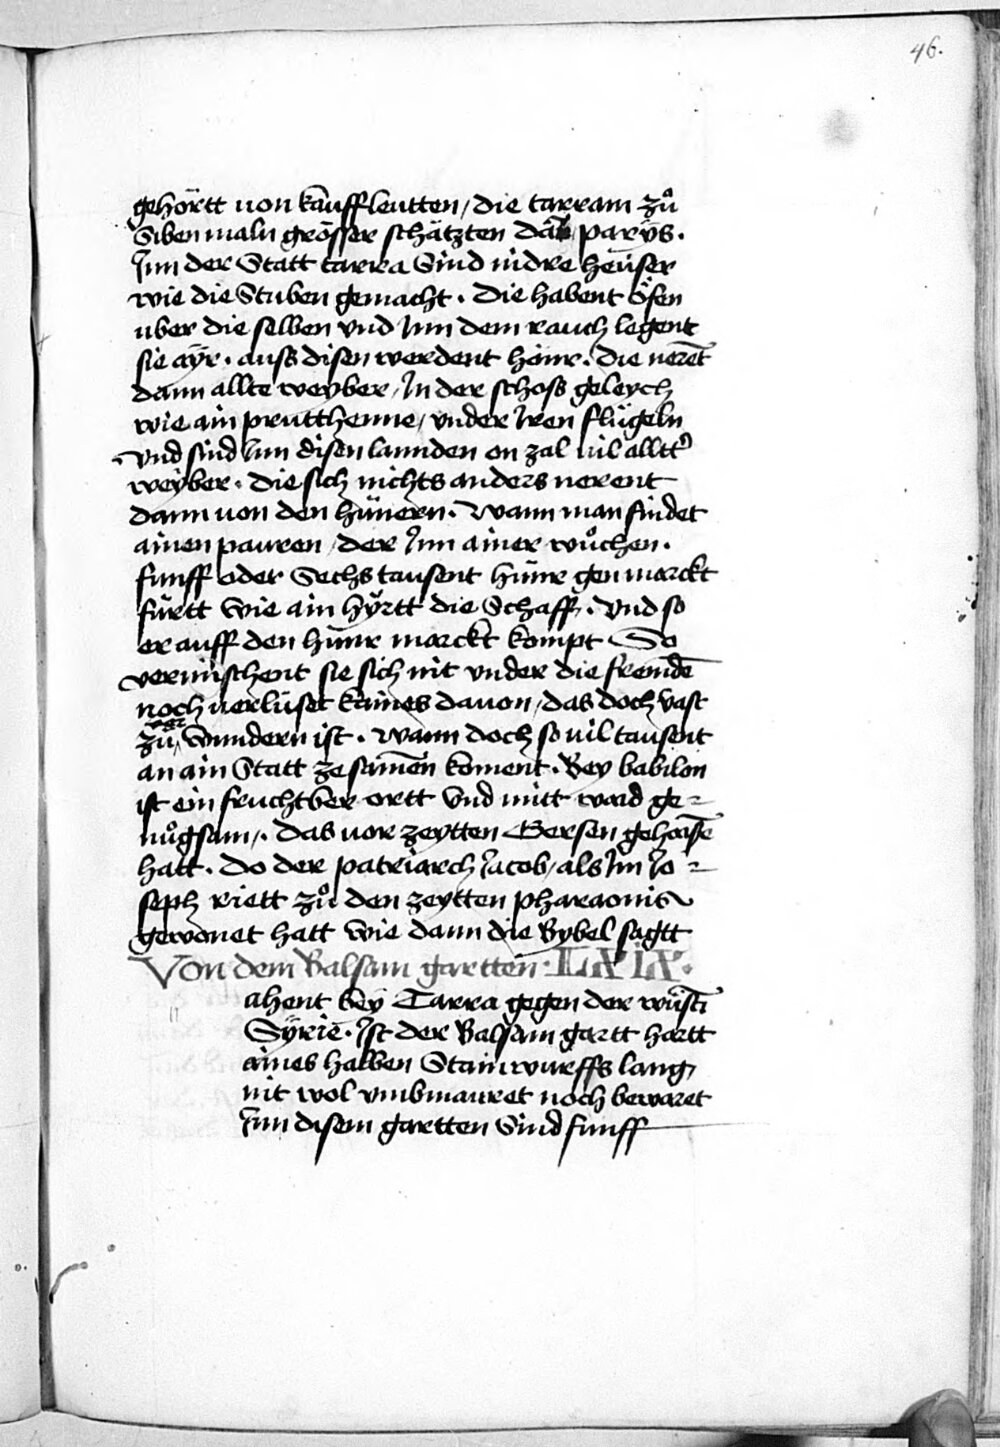 46.
gehörtt von kauffleutten, die tarram zů
Siben maln grösser schätzten dan, parÿs.
Jnn der Statt tarra Sind nidre heüser
wie die Stuben gemacht. die habent öfen
uber die selben vnd Jnn dem rauch legent
sie aÿr. auss disen werdent höinr. die nerēt
dann allte weyber, Jn der schoss geleych
wie ain prutthenne, vnder Jren flügeln
vnd sind Jnn disen lannden on zal vil alltt
weyber. die sich nichts anders nerent
dann von den hünern. wann man findet
ainen pauren, der Jnn ainer wůchen.
funff oder Sechs tausent hünr gen marckt
fürtt wie ain hÿrtt die Schaff. vnd so
er auff den hünr marckt kompt So
vermischent sie sich nit vnder die fremdē
noch verlüset kaines davon, das doch vast
zů ver wundern ist. wann doch so vil tausent
an ain Statt zesamen koment. Bey babilon
ist ein fruchtber ortt vnd mitt waid ge-
nůgsam,. das vor zeytten Gersen gehaisē
hatt. do der patriarch Jacob, als Jm Jo-
seph riett zů den zeytten pharaonis
gewonet hatt wie dann die Bybel sagtt
Von dem Balsam gartten. LXIX.
ahent bey Tarra gegen der wüsti
Sÿrie. Jst der Balsam gartt hartt
aines halben Stainwurffs lang,
nit wol vmbmauret noch bewaret
Jnn disem gartten Sind funff